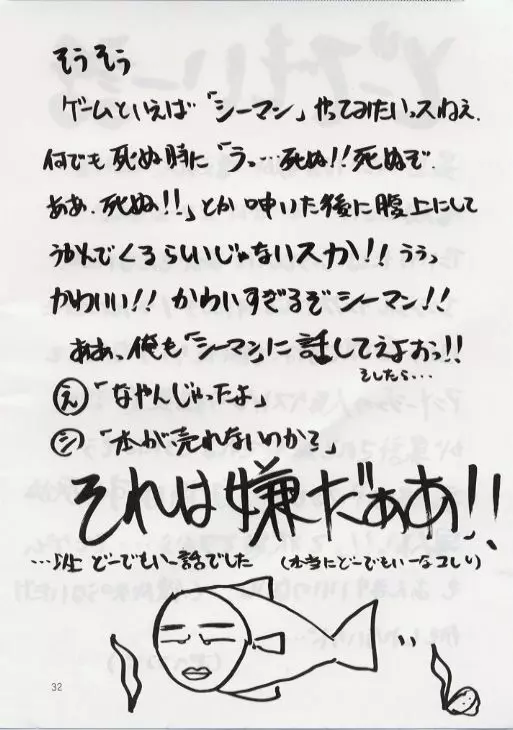 そうそう
ゲームといえば「シーマン」やってみたいっスねえ.
何でも死ぬ時に「うっ…死ぬ!!死ぬぞ
ああ.死ぬ!!」とか呻いた後に腹上にして
うかんでくるらしいじゃないスか!!ううっ
かわいい!!かわいすぎるぞシーマン!!
ああっ俺も「シーマン」に話してえよおっ!!
そしたら…
え「なやんじゃったよ」
シ「本が売れないのか?」
それは嫌だぁあ!!
…以上どーでもいー話でした (本当にどーでもいーなコレ)
32